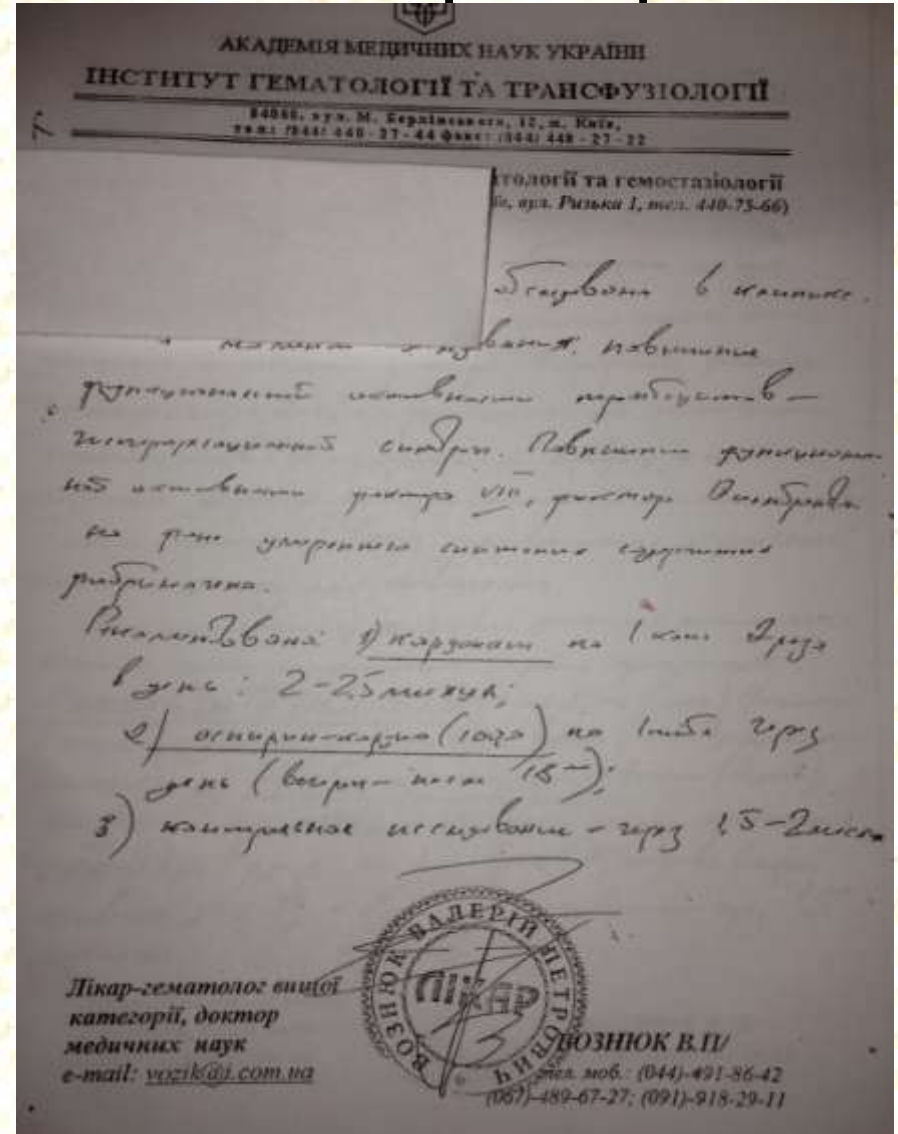 АКАДЕМІЯ МЕДИЧНИХ НАУК УКРАЇНИ
ІНСТИТУТ ГЕМАТОЛОГІЇ ТА ТРАНСФУЗІОЛОГІЇ
04060, вул. М. Берлинського, 12, м. Київ,
тел.: (044) 440 - 27 - 44 факс: (044) 440 - 27 - 22
тології та гемостазіології
вул. Ризька 1, тел. 440-75-66)
в клинике.
повышение
функциональной активности тромбоцитов –
гиперагрегационный синдром. Повышение функциональ
ной активности фактора VIII, фактора Виллебранда
на фоне умеренного снижения содержания
фибриногена.
Рекомендована 1) кардонат по 1 капс 2 раза
в день: 2-2,5 месяца;
2) аспирин-кардио (100) по 1 табл через
день (вечером после 18 –);
3) контрольное исследование – через 1,5-2 месяц
ВОЗНЮК ВАЛЕРІЙ ПЕТРОВИЧ
ЛІКАР
Лікар-гематолог вищої
категорії, доктор
медичних наук
e-mail: vozik@i.com.ua
ВОЗНЮК В.П/
тел. моб.: (044)-491-86-42
(067)-489-67-27; (091)-918-29-11